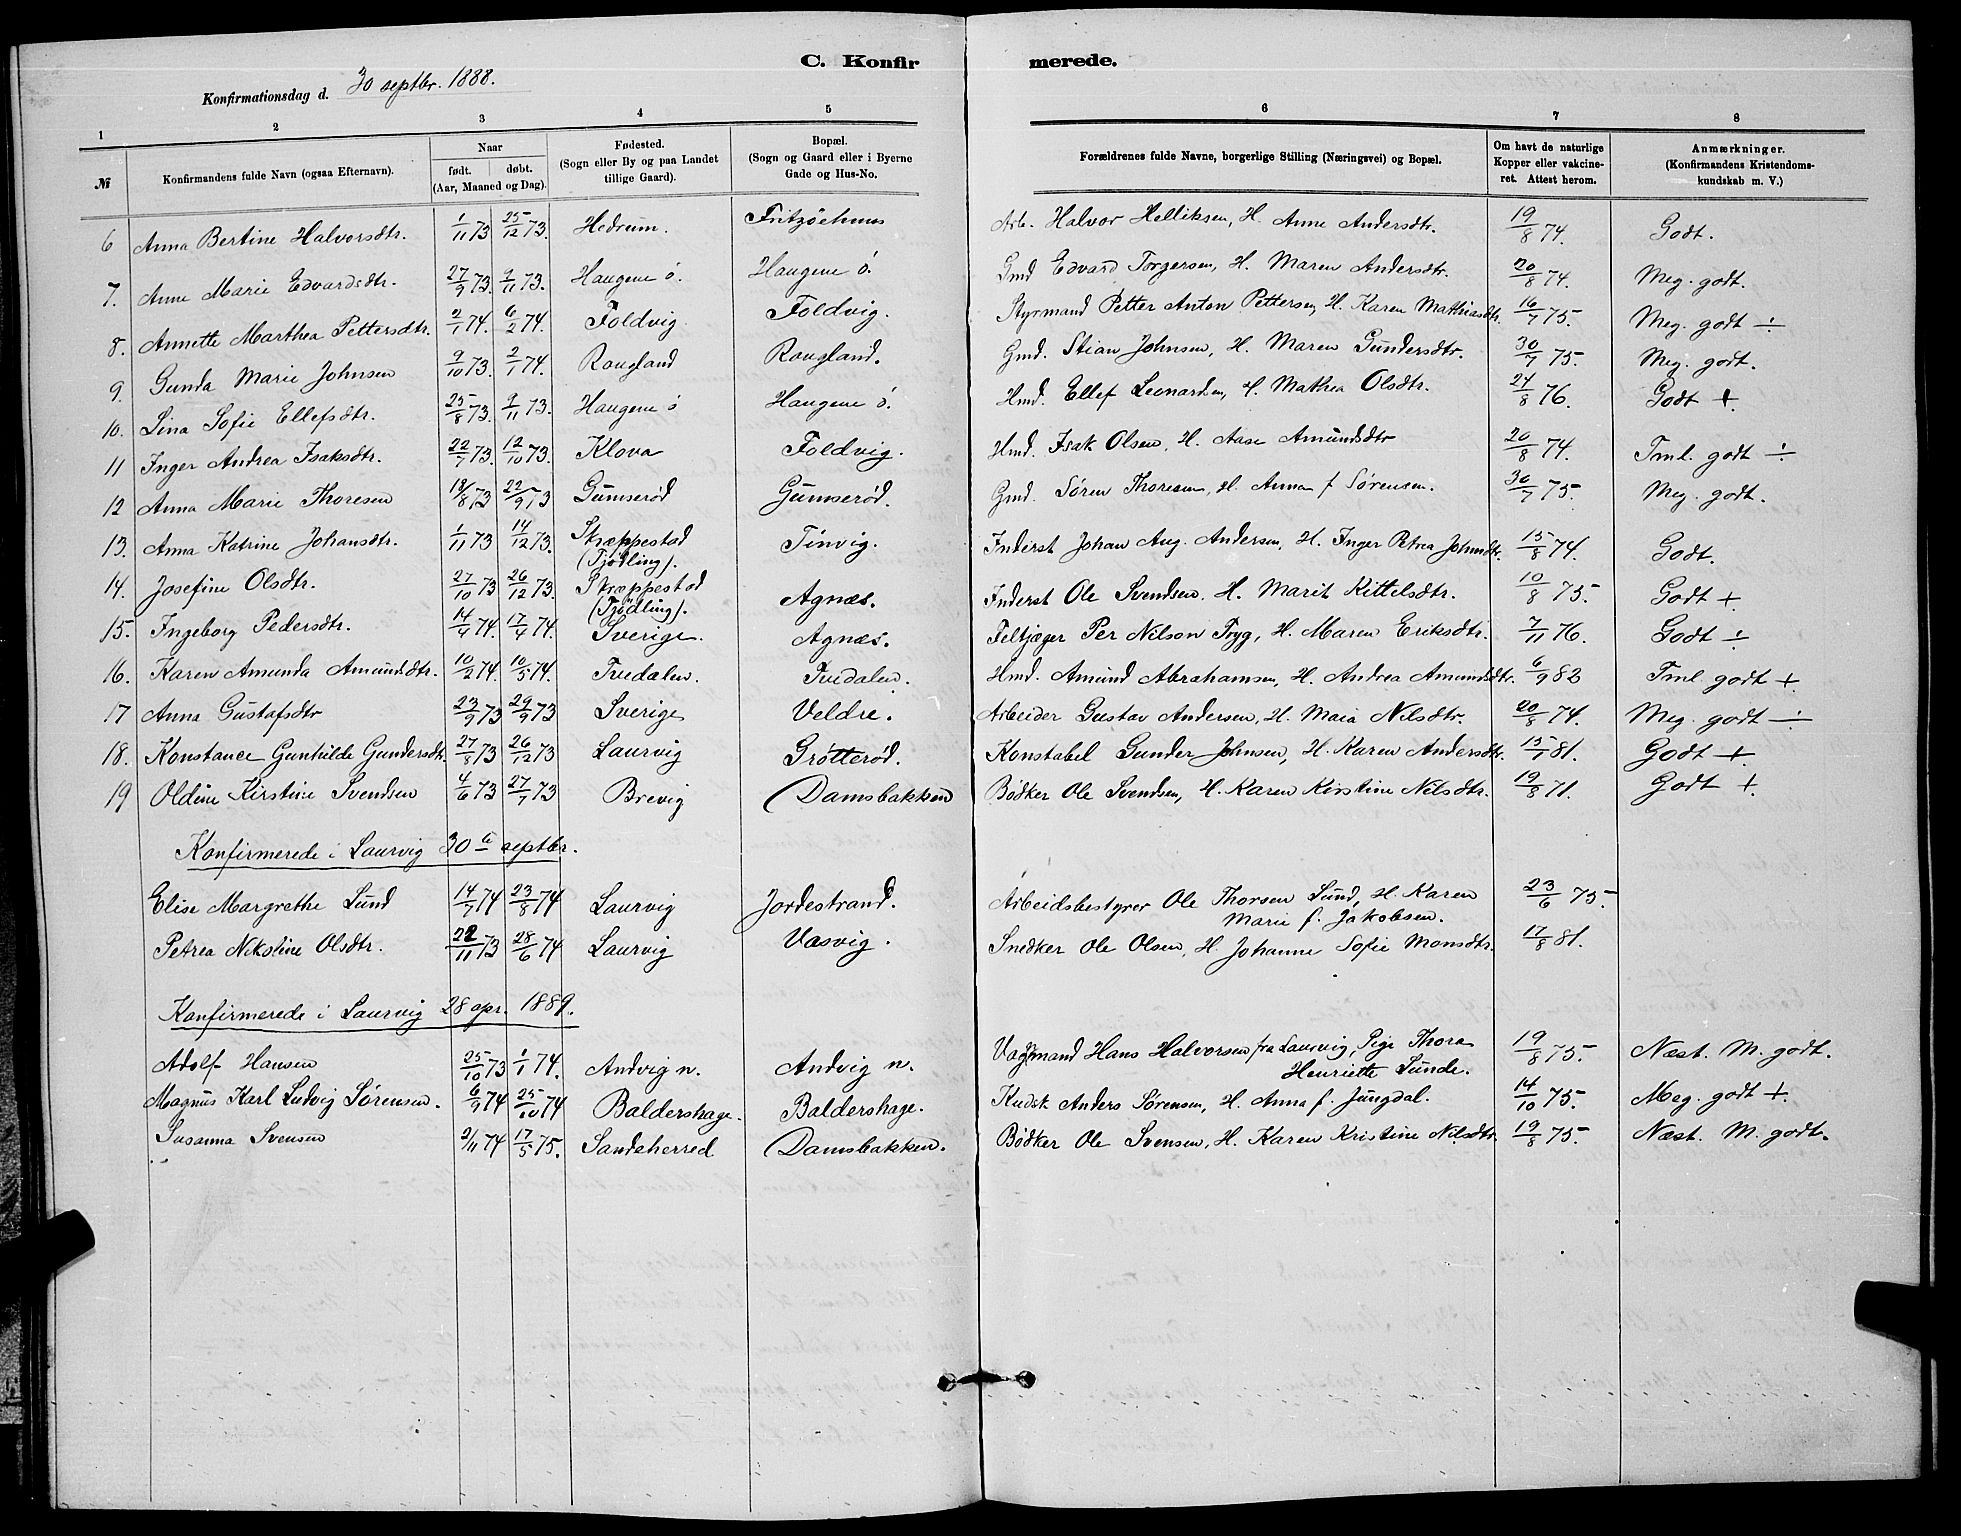 C. Konfirmerede.
Konfirmationsdag d. 30 septbr. 1888.
1 2 3 4 5 6 7 8
№ Konfirmandens fulde Navn (ogsaa Efternavn). Naar født. døbt. (Aar, Maaned og Dag). Fødested. (Sogn eller By og paa Landet tillige Gaard). Bopæl. (Sogn og Gaard eller i Byerne Gade og Hus-No. Forældrenes fulde Navne, borgerlige Stilling (Næringsvei) og Bopæl. Om havt de naturlige Kopper eller vakcineret. Attest herom. Anmærkninger. (Konfirmandens Kristendomskundskab m. V.)
6 Anna Bertine Halvorsdtr. 1/11 73 25/12 73. Hedrum. Fritzöehuus Arb. Halvor Helliksen, H. Anne Andersdtr. 19/8 74. Godt.
7. Anne Marie Edvardsdtr. 27/9 73. 9/11 73. Haugene ö. Haugene ö. Gmd Edvard Torgersen, H. Maren Andersdtr. 20/8 74. Meg. godt.
8. Annette Marthea Pettersdtr. 2/1 74. 6/2 74. Foldvig Foldvig. Styrmand Petter Anton Pettersen, H. Karen Mathiasdtr. 16/7 75. Meg. godt ÷
9. Gunda Marie Johnsen 9/10 73. 2/1 74. Rougland Rougland. Gmd. Stian Johnsen, H. Maren Gundersdtr. 30/7 75. Meg. godt.
10. Lina Sofie Ellefsdtr. 25/8 73. 9/11 73. Haugene ö Haugene ö. Hmd. Ellef Leonardsen, H. Mathea Olsdtr. 24/8 76. Godt +.
11 Inger Andrea Isaksdtr. 22/7 73. 12/10 73. Klova Foldvig. Hmd. Isak Olsen, H. Aase Amundsdtr 20/8 74. Tml. godt ÷
12 Anna Marie Thoresen 18/8 73 22/9 73 Gumserød Gumserød. Gmd. Søren Thoresen, H. Anna f Sørensen. 30/7 75. Meg. godt.
13. Anna Katrine Johansdtr. 1/11 73 14/12 73. Skræppestad (Tjødling). Tinvig. Inderst Johan Aug. Andersen, H. Inger Petrea Johnsdtr. 15/8 74. Godt.
14. Josefine Olsdtr. 27/10 73 26/12 73. Skræppestad (Tjødling). Agnæs. Inderst Ole Svendsen. H. Marit Kittelsdtr. 10/8 75. Godt +
15. Ingeborg Pedersdtr. 14/4 74. 17/4 74. Sverige. Agnæs. Feltjæger Per Nilson Tryg, H. Maren Eriksdtr. 7/11 76. Godt ÷
16. Karen Amunda Amundsdtr. 10/2 74. 10/5 74. Tvedalen. Tvedalen. Hmd. Amund Abrahamsen, H. Andrea Amundsdtr. 6/9 82 Tml godt +
17 Anna Gustafsdtr 23/9 73 29/9 73 Sverige Veldre. Arbeider Gustav Andersen, H. Maia Nilsdtr. 20/8 74. Meg. godt ÷
18. Konstance Gunhilde Gundersdtr. 27/8 73 26/12 73 Laurvig Grötterød. Konstabel Gunder Johnsen, H. Karen Andersdtr. 15/7 81. Godt +
19 Oldine Kirstine Svendsen 4/6 73 27/7 73 Brevig Damsbakken Bødker Ole Svendsen, H. Karen Kirstine Nilsdtr. 19/8 71. Godt +.
Konfirmerede i Laurvig 30te septbr.
Elise Margrethe Lund 14/7 74 23/8 74 Laurvig Jordestrand. Arbeidsbestyrer Ole Thorsen Lund, H. Karen Marie f. Jakobsen. 23/6 75.
Petrea Nikoline Olsdtr. 22/11 73 28/6 74 Laurvig Vasvig. Snedker Ole Olsen, H. Johanne Sofie Monsdtr. 17/8 81.
Konfirmerede i Laurvig 28 apr. 1889.
Adolf Hansen 25/10 73 1/1 74. Andvig n. Andvig n. Vagtmand Hans Halvorsen fra Laurvig, Pige Thora Henriette Lunde. 19/8 75. Næst. M. godt.
Magnus Karl Ludvig Sørensen. 6/9 74 25/10 74 Baldershage. Baldershage. Kudsk Anders Sørensen, H. Anna f. Jungdal. 14/10 75. Meg. godt +.
Susanna Svensen 2/11 74 17/5 75. Sandeherred Damsbakken. Bødker Ole Svensen, H. Karen Kristine Nilsdtr. 19/8 75. Næst. M. godt.